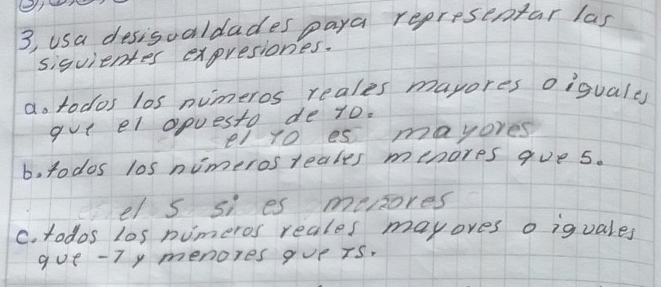 3, usa desigualdades para representar las
siguientes expresiones.
a. todos los números reales mayores o iguales
que el opuesto de 10.
el 10 es mayores
b. todos los números reales menores que 5.
el 5 si es menores
c. todos los números reales mayores o iguales
que -7 y menores que 15.